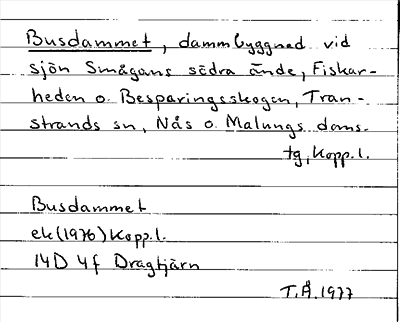 Busdammet, dammbyggned vid
sjön Smågans södra ände, Fiskar-
heden o. Besparingsskogen, Tran-
strands sn, Nås o. Malungs doms.
tg, Kopp. l.
Busdammet
ek (1976) Kopp. l.
14D 4f Dragtjärn
T.Å. 1977